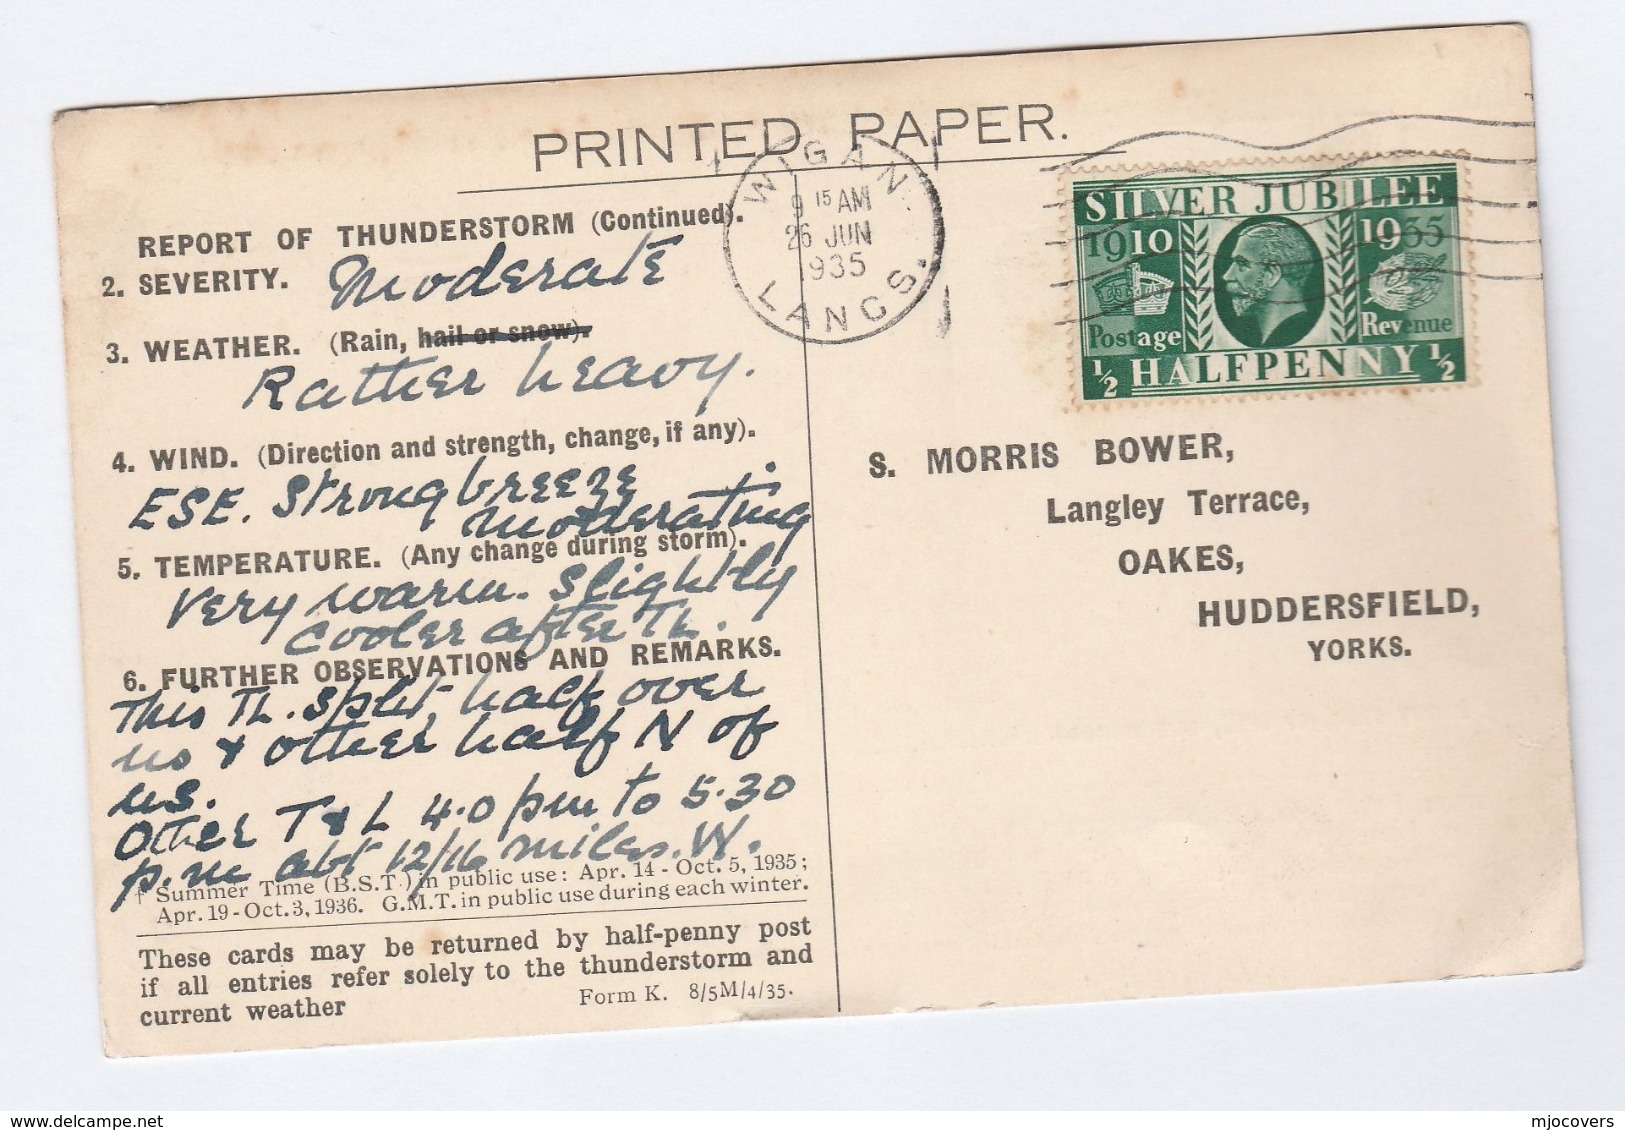 PRINTED PAPER.
WIGAN
9 15 AM
26 JUN
1935
LANCS.
SILVER JUBILEE
1910 1935
Postage Revenue
½ HALFPENNY ½
REPORT OF THUNDERSTORM (Continued).
2. SEVERITY. Moderate
3. WEATHER. (Rain, hail or snow).
Rather heavy.
4. WIND. (Direction and strength, change, if any).
ESE. Strong breeze
moderating
5. TEMPERATURE. (Any change during storm).
Very warm. Slightly
cooler after Th.
6. FURTHER OBSERVATIONS AND REMARKS.
This Th. split half over
us & other half N of
us.
Other T & L 4.0 pm to 5.30
p.m abt 12/16 miles. W.
† Summer Time (B.S.T.) in public use: Apr. 14 - Oct. 5, 1935;
Apr. 19 - Oct. 3, 1936. G.M.T. in public use during each winter.
These cards may be returned by half-penny post
if all entries refer solely to the thunderstorm and
current weather Form K. 8/5M/4/35.
S. MORRIS BOWER,
Langley Terrace,
OAKES,
HUDDERSFIELD,
YORKS.
delcampe.net
mjocovers